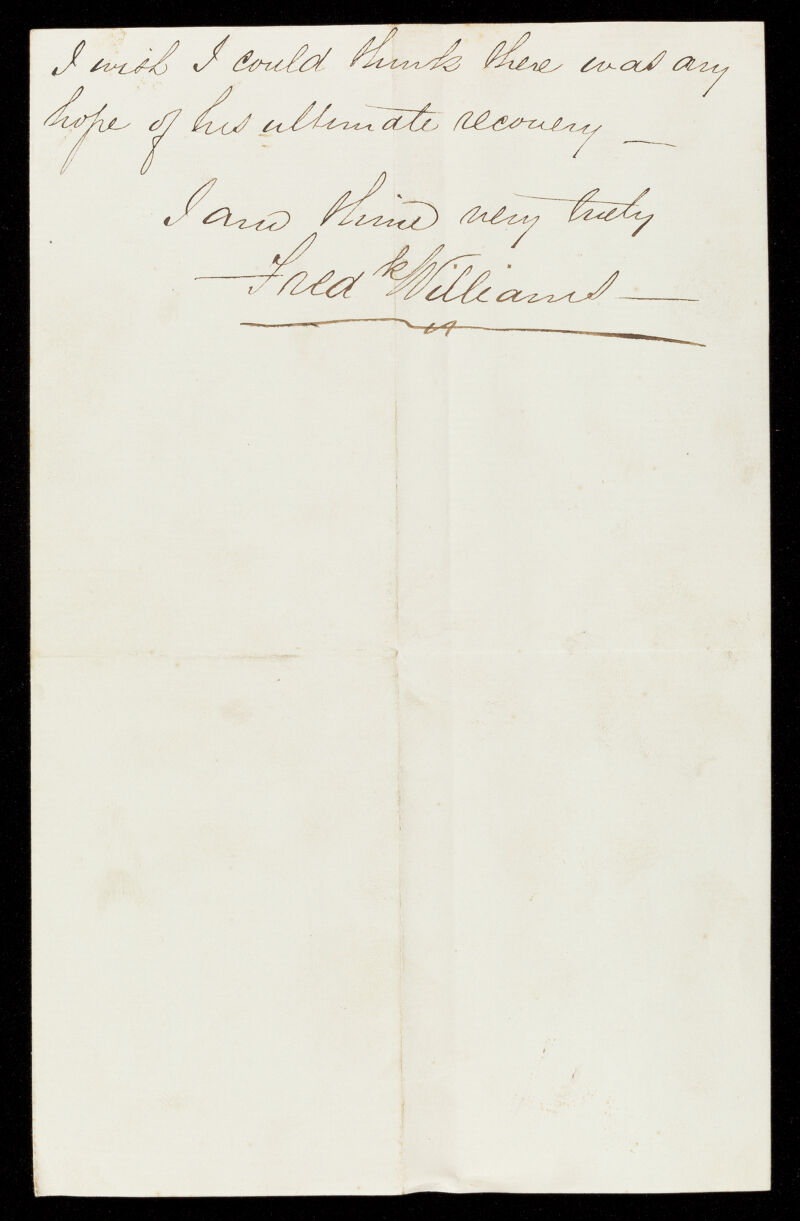 I wish I could think there was any
hope of his ultimate recovery —
I am thine very truly
— Fredk Williams —